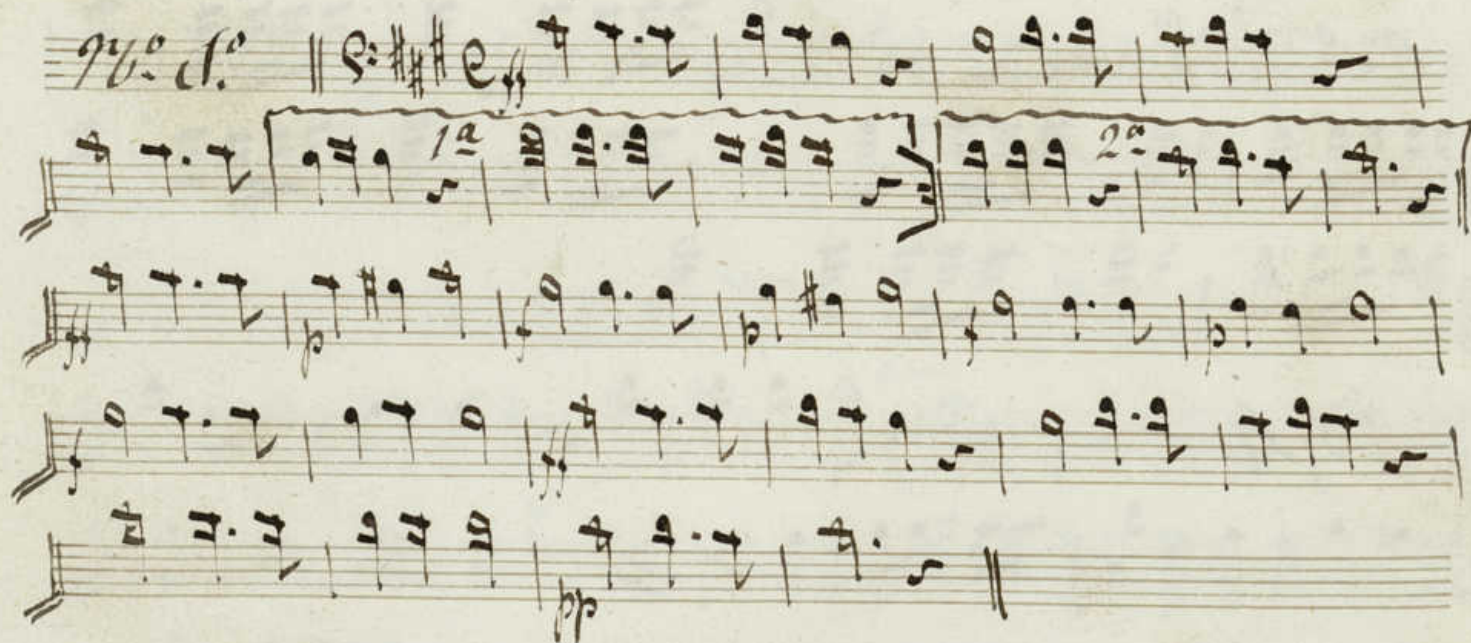 Nº. 1.º ff
1ª 2ª
ff p f p f p
f ff
pp